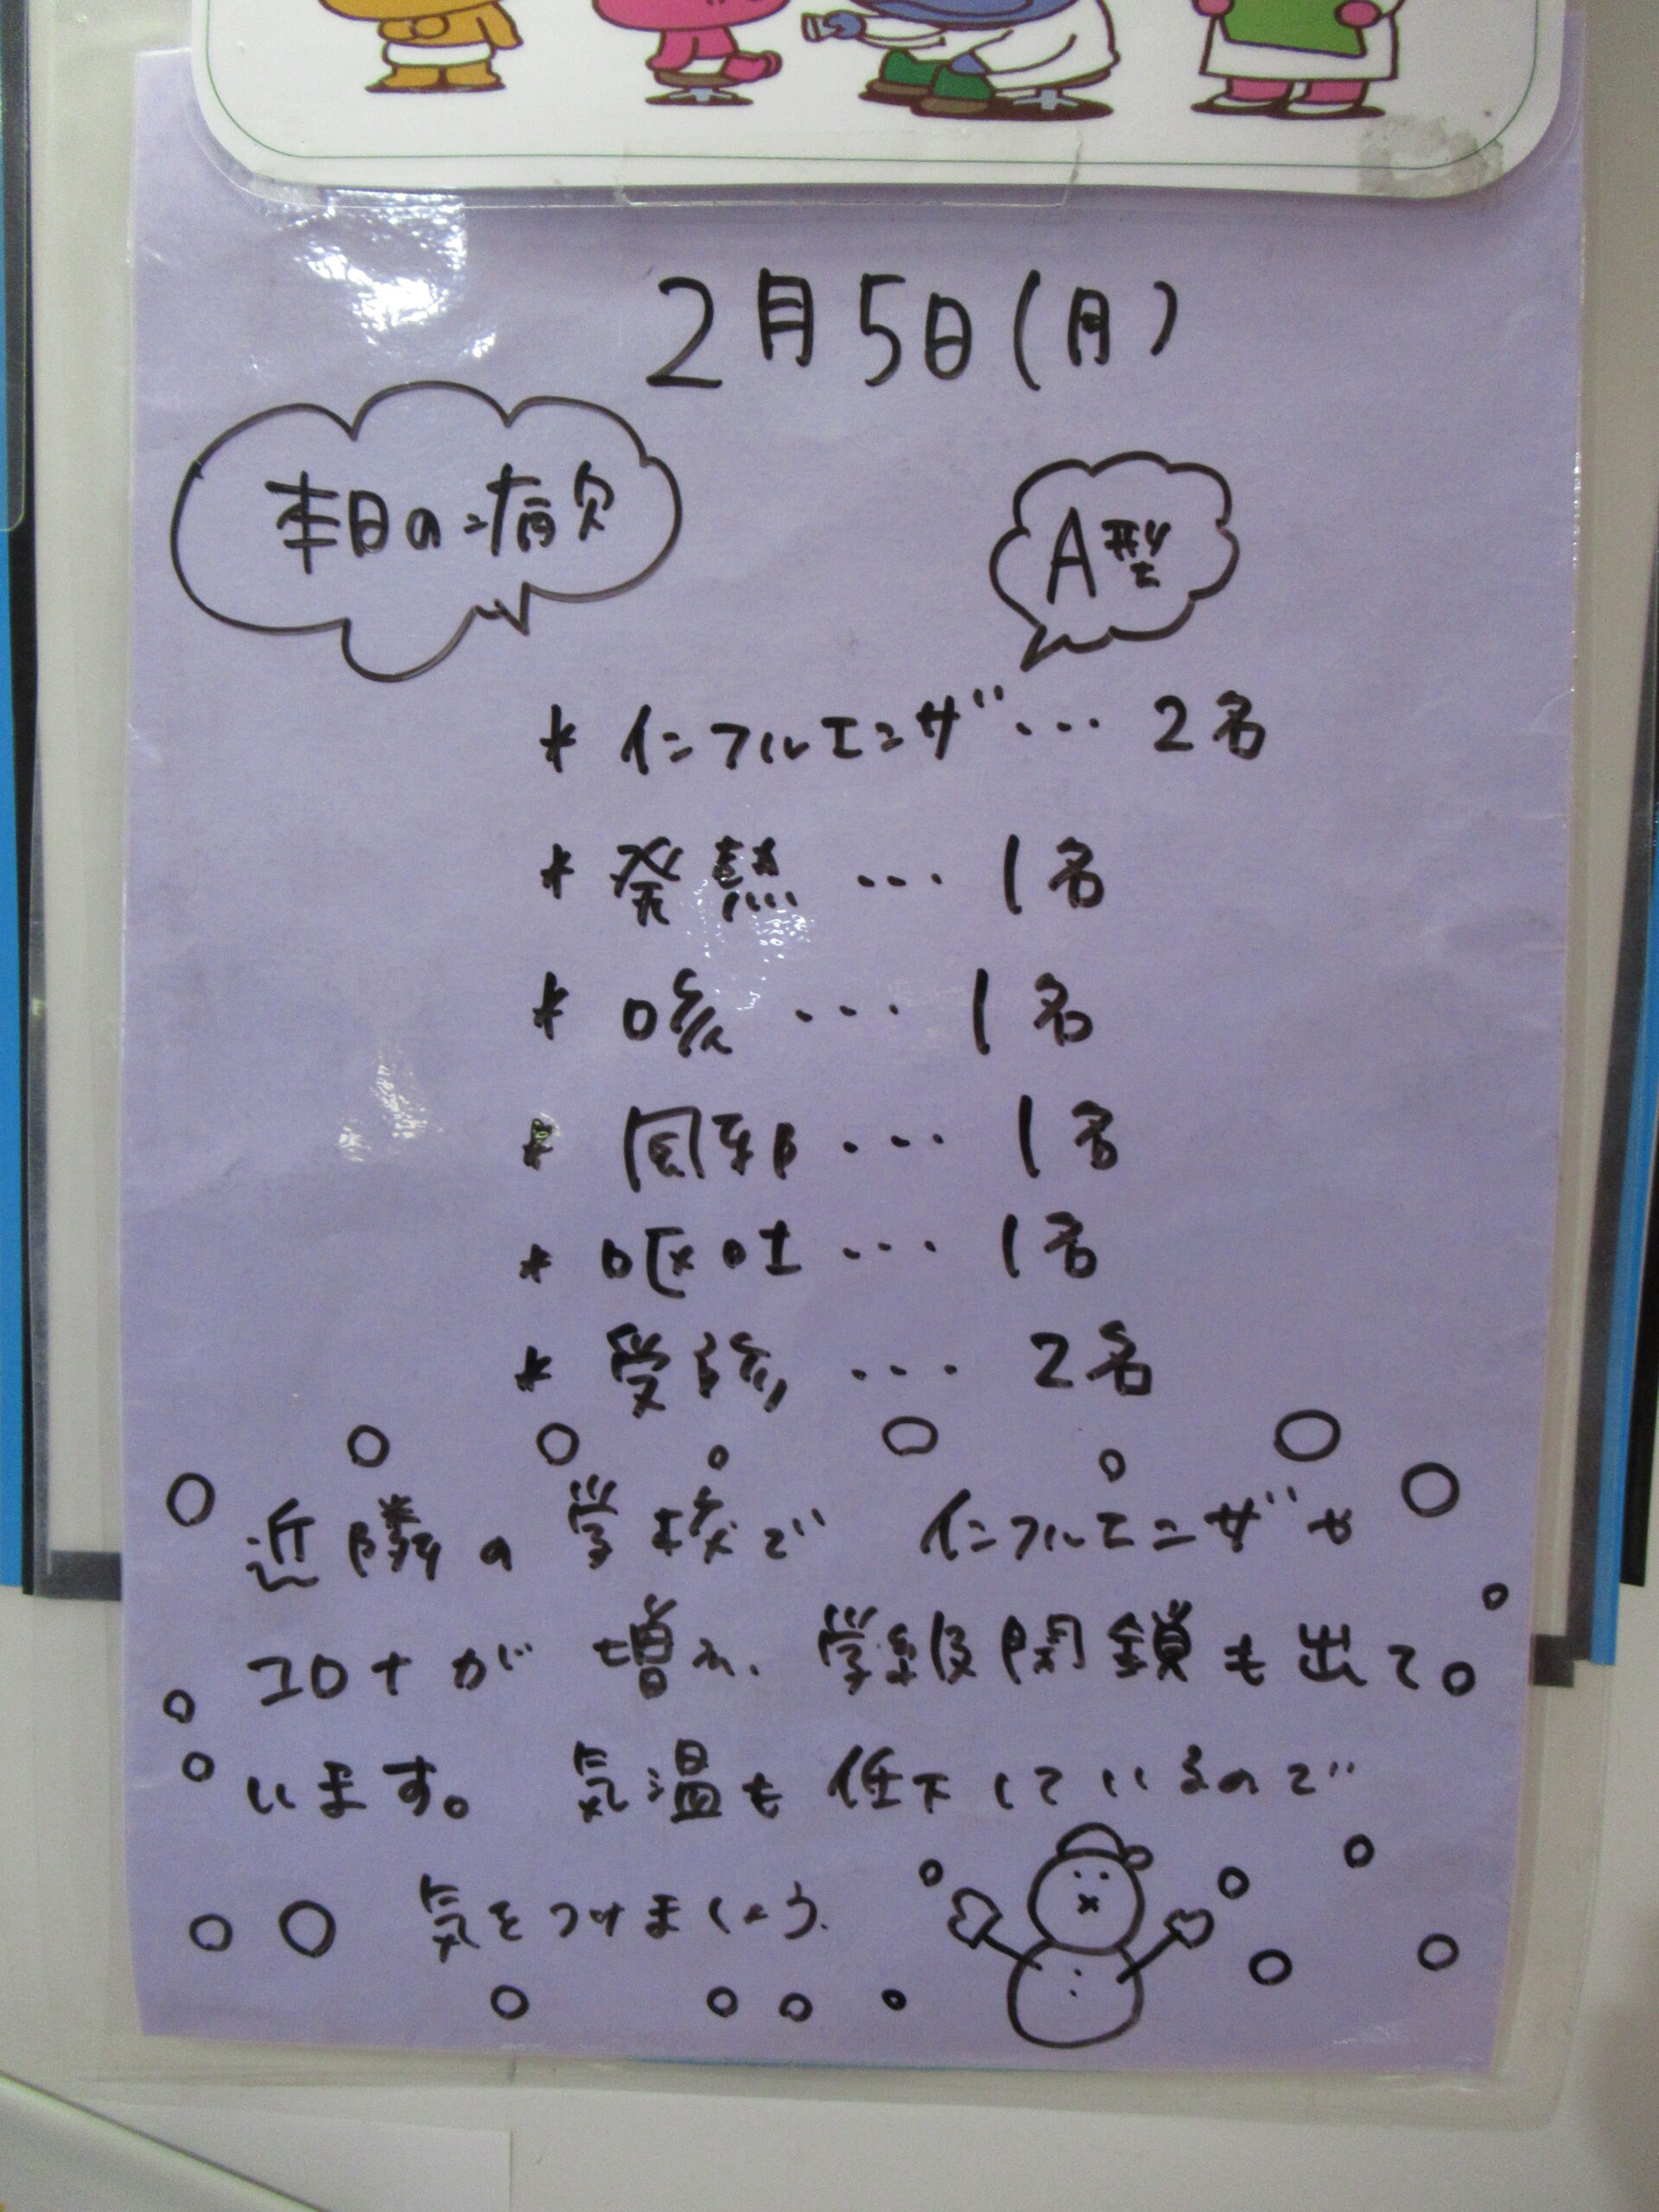 2月5日(月)
本日の病欠
A型
* インフルエンザ… 2名
* 発熱 … 1名
* 咳 … 1名
* 風邪 … 1名
* 嘔吐 … 1名
* 受診 … 2名
近隣の学校で インフルエンザや
コロナが 増え、学級閉鎖も出て
います。 気温も低下しているので
気をつけましょう.